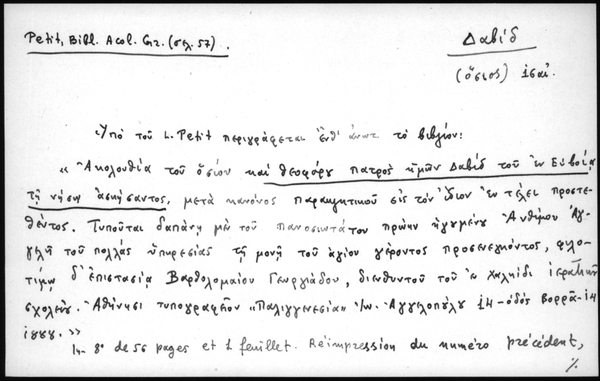 Petit, Bibl. Acol. Gr. (σελ. 57).
Δαβίδ
(ὅσιος) ἰσαπ.
Ὑπὸ τοῦ L. Petit περιγράφεται ἔνθ' ἄνωτ. τὸ βιβλίον:
« Ἀκολουθία τοῦ ὁσίου καὶ θεοφόρου πατρὸς ἡμῶν Δαβὶδ τοῦ ἐν Εὐβοίᾳ
τῇ νήσῳ ἀσκήσαντος, μετὰ κανόνος παρακλητικοῦ εἰς τὸν ἴδιον ἐν τέλει προστε-
θέντος. Τυποῦται δαπάνῃ μὲν τοῦ πανοσιωτάτου πρώην ἡγουμένου Ἀνθίμου Ἀγ-
γελῆ τοῦ πολλὰς ὑπηρεσίας τῇ μονῇ τοῦ ἁγίου γέροντος προσενεγκόντος, φιλο-
τίμῳ δ' ἐπιστασίᾳ Βαρθολομαίου Γεωργιάδου, διευθυντοῦ τοῦ ἐν Χαλκίδι ἱερατικῆς
σχολῆς. Ἀθήνησι τυπογραφεῖον «Παλιγγενεσία» Ἰω. Ἀγγελοπούλου 14-ὁδὸς Βορρᾶ-14
1888. »
In-8° de 56 pages et 1 feuillet. Réimpression du numéro précédent,
%